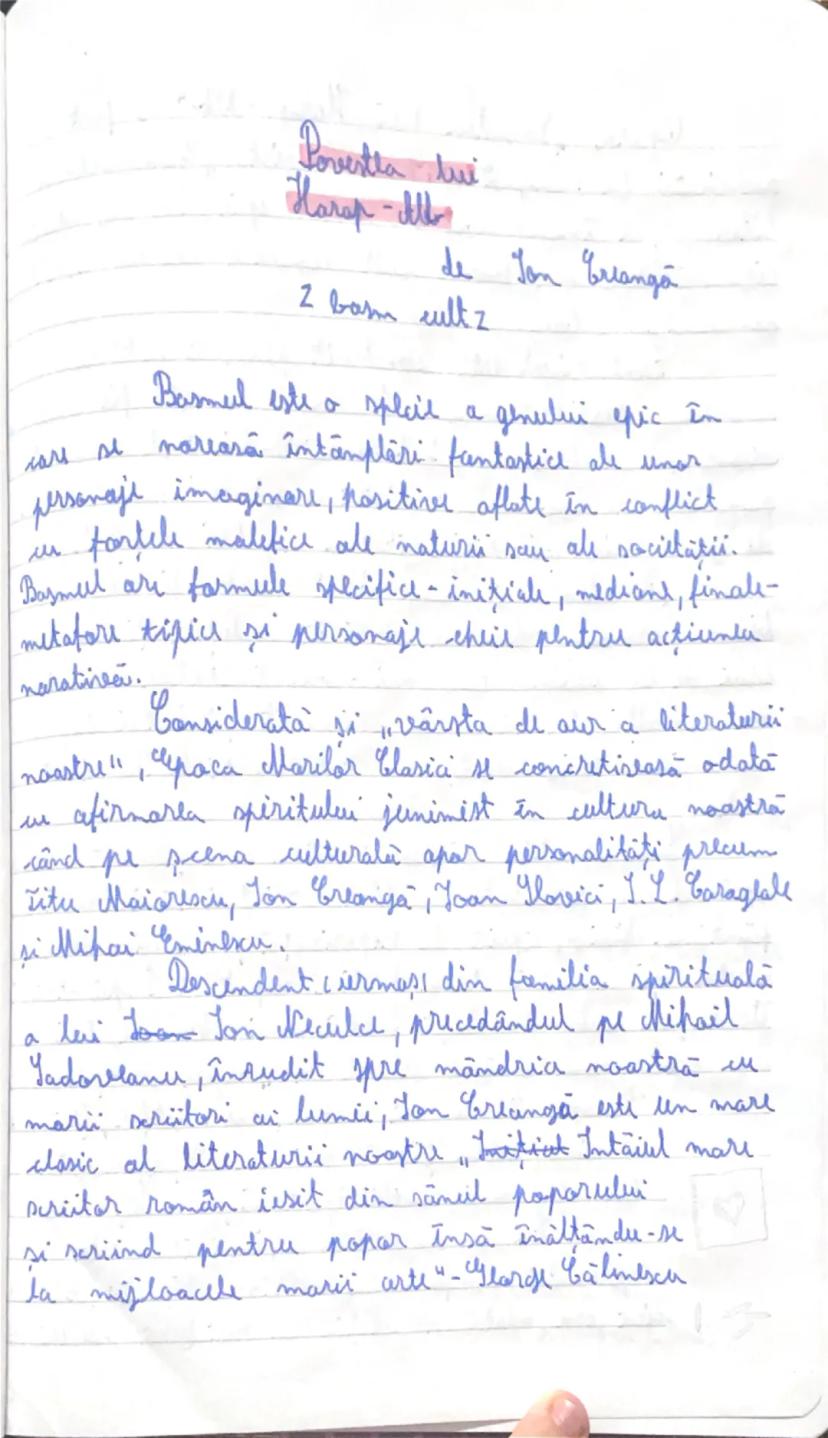 Povestea lui
Harap-Alb
de Ion Creangă
~ basm cult ~
Basmul este o specie a genului epic în
care se norează întâmplări fantastice ale unor
personaje imaginare, pozitive aflate în conflict
cu forțele malefice ale naturii sau ale societății.
Basmul are formule specifice - inițiale, mediane, finale -
metafore tipice și personaje cheie pentru acțiunea
narativă.
Considerată și „vârsta de aur a literaturii
noastre", Epoca Marilor Clasici se concretizează odată
cu afirmarea spiritului junimist în cultura noastră
când pe scena culturală apar personalități precum
Titu Maiorescu, Ion Creangă, Ioan Slavici, I.L. Caragiale
și Mihai Eminescu.
Descendent (urmaș) din familia spirituală
a lui Ioan Ion Neculce, precedându'l pe Mihail
Sadoveanu, înrudit spre mândria noastră cu
marii scriitori ai lumii, Ion Creangă este un mare
clasic al literaturii noastre „Inițiat Întâiul mare
scriitor român iesit din sânul poporului
și scriind pentru popor însă înălțându-se
la mijloacele marii arte" - George Călinescu